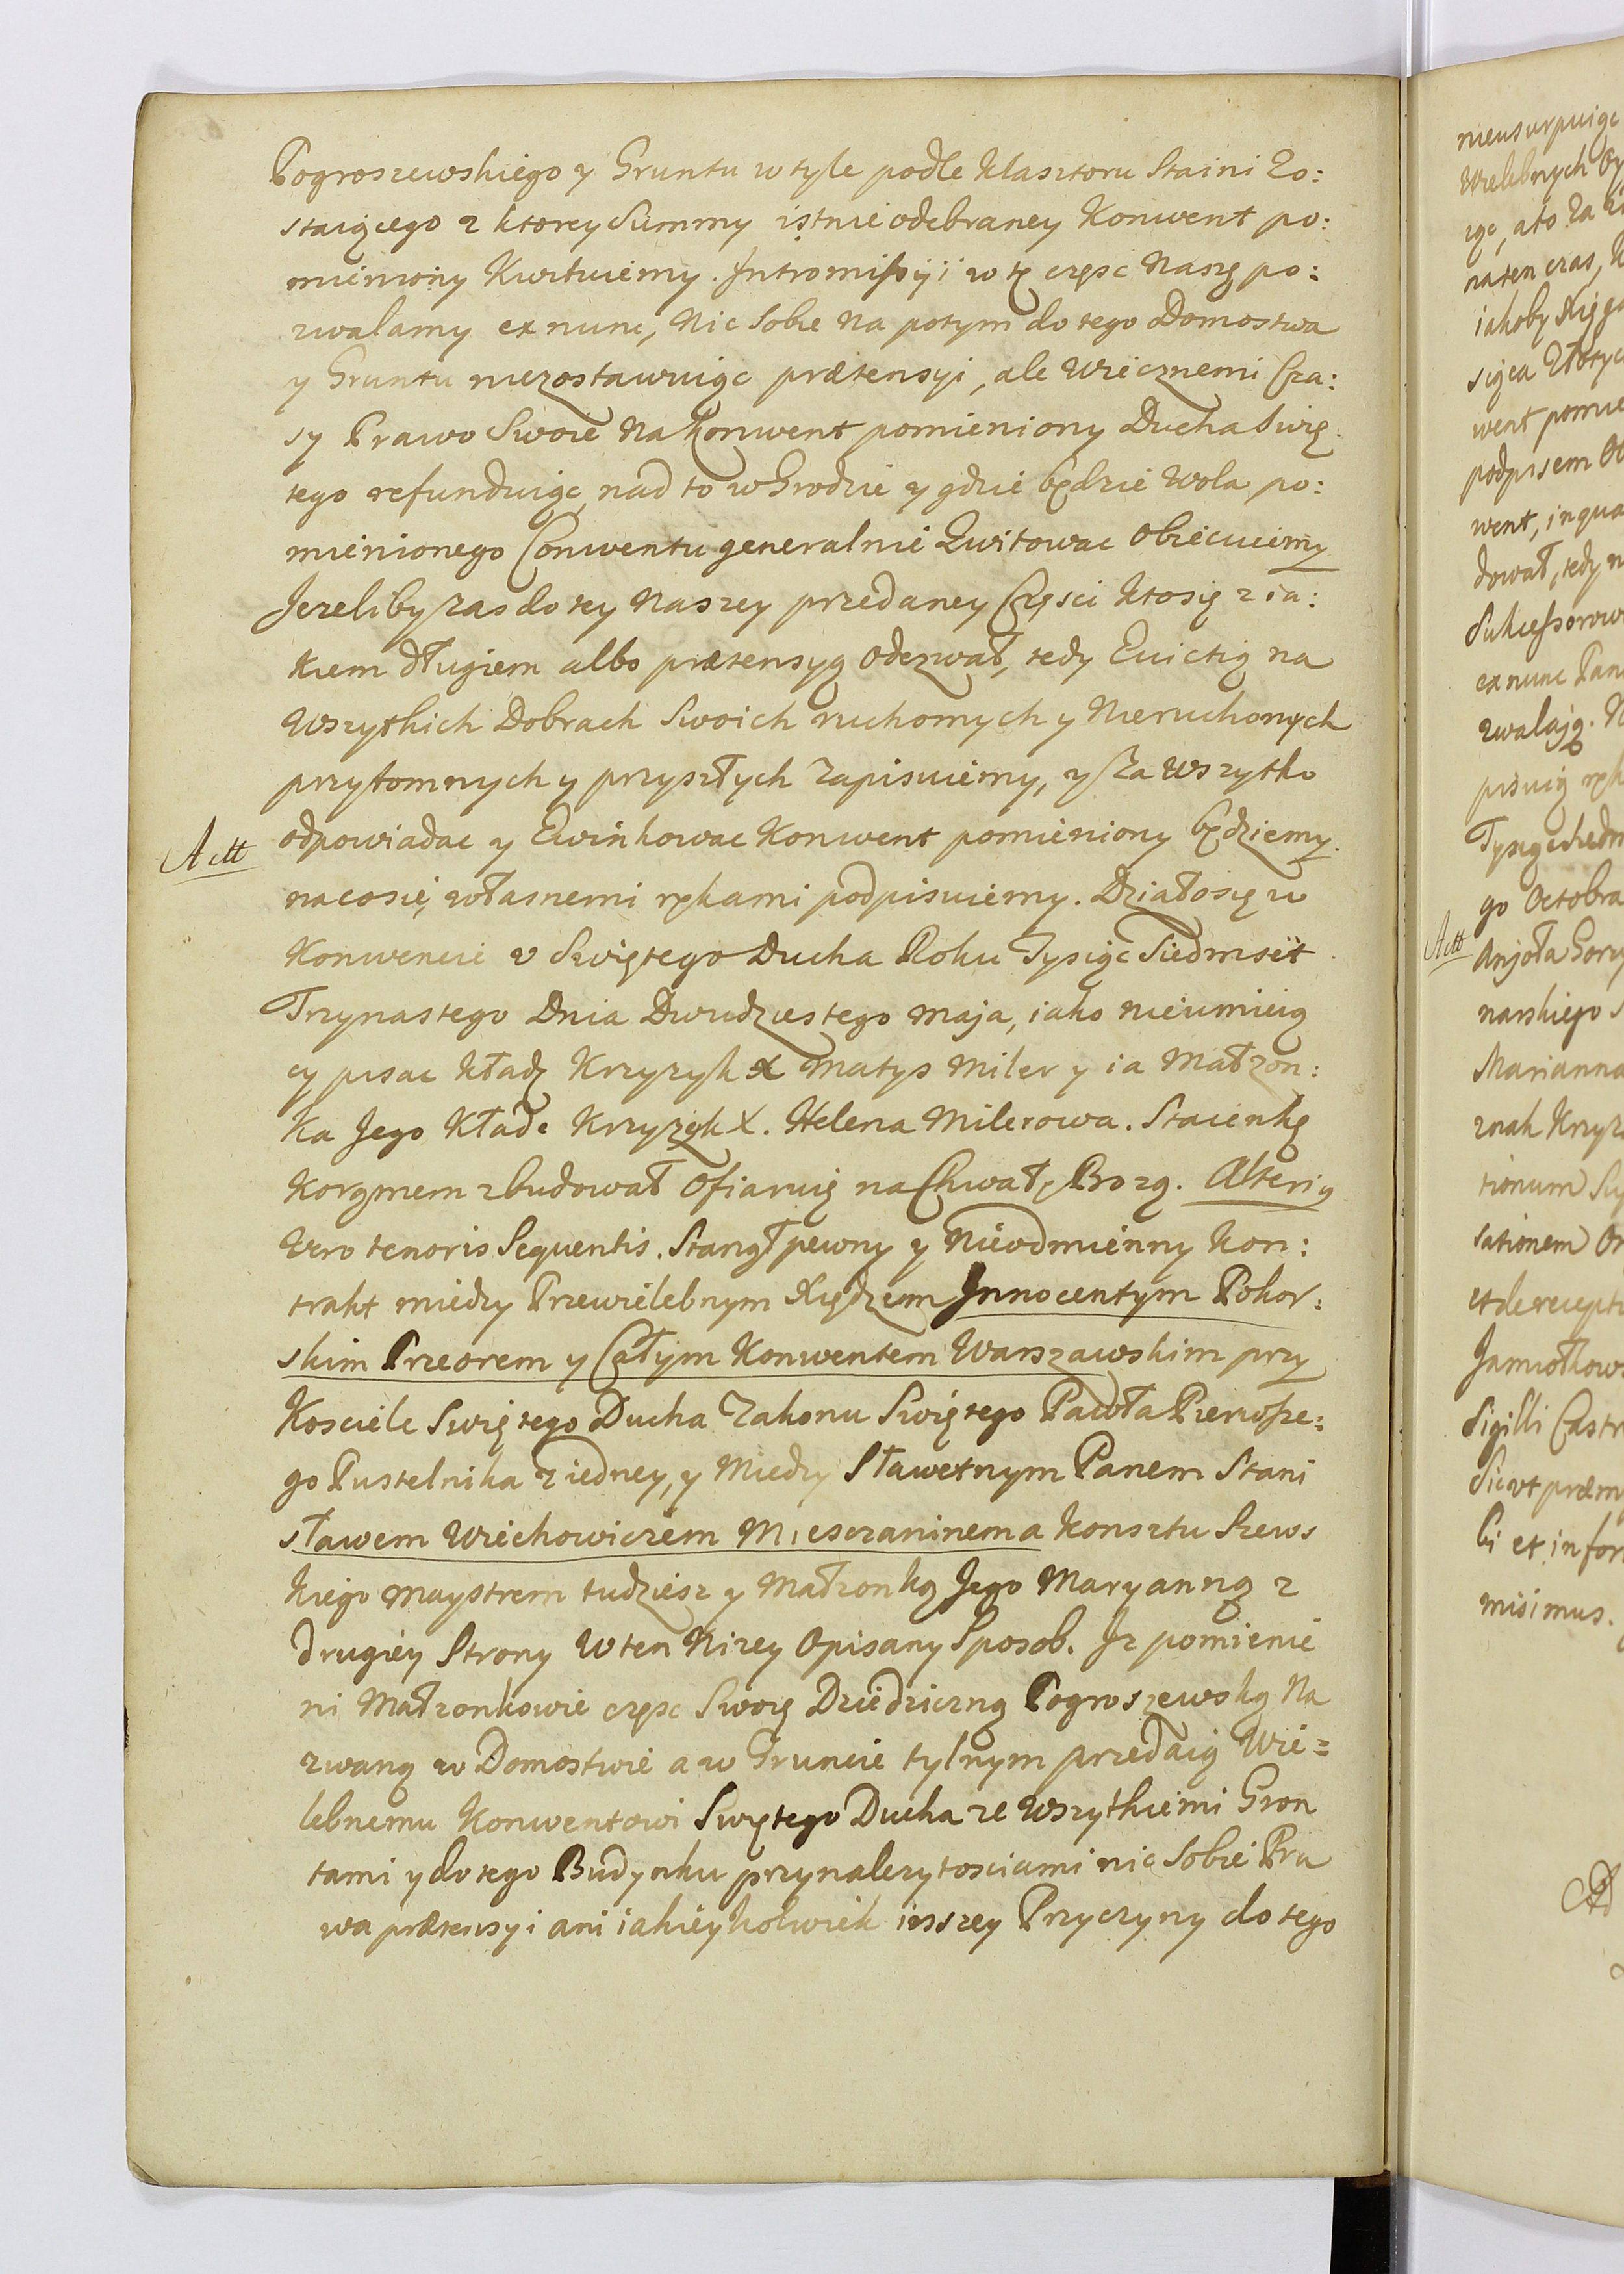 Pogroszewskiego y Gruntu w tyle podle Klasztoru Staini Zo:
staiącego z ktorey Summy istnie odebraney Konwent po:
mieniony Kwituiemy. Intromissyi w tę częsc Naszę po:
zwalamy ex nunc, Nic Sobie Na potym do tego Domostwa
y Gruntu niezostawuiąc prætensyi, ale Wiecznemi Cza:
sy Prawo Swoie Na Konwent pomieniony Ducha Swię
tego refunduiąc, nad to w Grodzie y gdzie będzie Wola po:
mienionego Conwentu generalnie Quitowac Obiecuiemy
Jezeliby zas do tey Naszey przedaney Częsci Ktosię z ia:
kiem długiem albo prætensyą Odezwał, tedy Evictią na
Wszytkich Dobrach Swoich ruchomych y Nieruchomych
przytomnych y przyszłych Zapisuiemy, y Za Wszytko
odpowiadac y Ewinkowac Konwent pomieniony będziemy.
Actt
nacosię własnemi rękami podpisuiemy. Działosię w
Konwencie v Swiętego Ducha Roku Tysiąc Siedmset
Trzynastego Dnia Dwudziestego Maja, iako nieumieią
cy pisac kładę Krzyzyk X Matys Miler y ia Małzon:
ka Jego Kładę Krzyzyk X. Helena Milerowa. Staienkę
Korzmem zbudował Ofiaruię na Chwałę Bozą. Alteriq
Vero tenoris Sequentis. Stanął pewny y Nieodmienny Kon:
trakt miedzy Przewielebnym Xiędzem Innocentym Pokor:
skim Przeorem y Całym Konwentem Warszawskim przy
Kosciele Swiętego Ducha Zakonu Swiętego Pawła Pierwsze:
go Pustelnika z iedney, y Miedzy Sławetnym Panem Stani
sławem Wiechowiczem Miesczaninem a Konsztu Szews
kiego Maystrem tudziesz y Małzonką Jego Maryanną z
drugiey Strony W ten Nizey Opisany Sposob. Jz pomienie
ni Małzonkowie częsc Swoię Dziedziczną Pogroszewską Na
zwaną w Domostwie a w Gruncie tylnym przedaią Wie=
lebnemu Konwentowi Swętego Ducha ze Wszytkiemi Gron
tami y do tego Budynku przynalezytosciami nic Sobie Pra
wa prætensyi ani iakieykolwiek inszey Przyczyny do tego